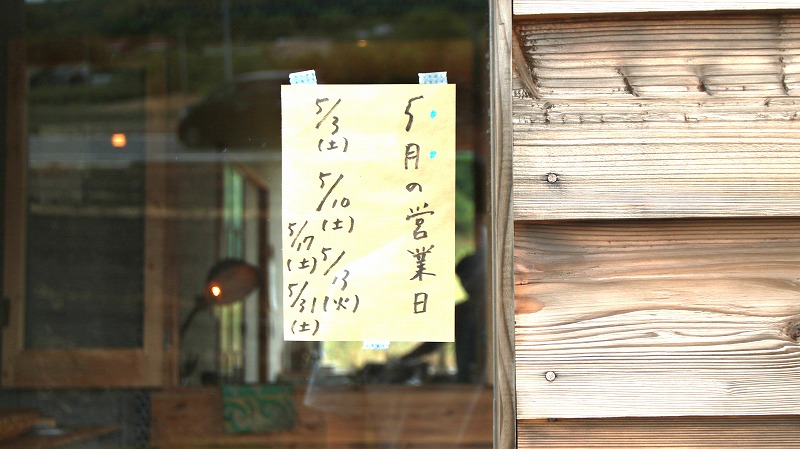 5月の営業日
5/3
(土)
5/10
(土)
5/13
(火)
5/17
(土)
5/31
(土)